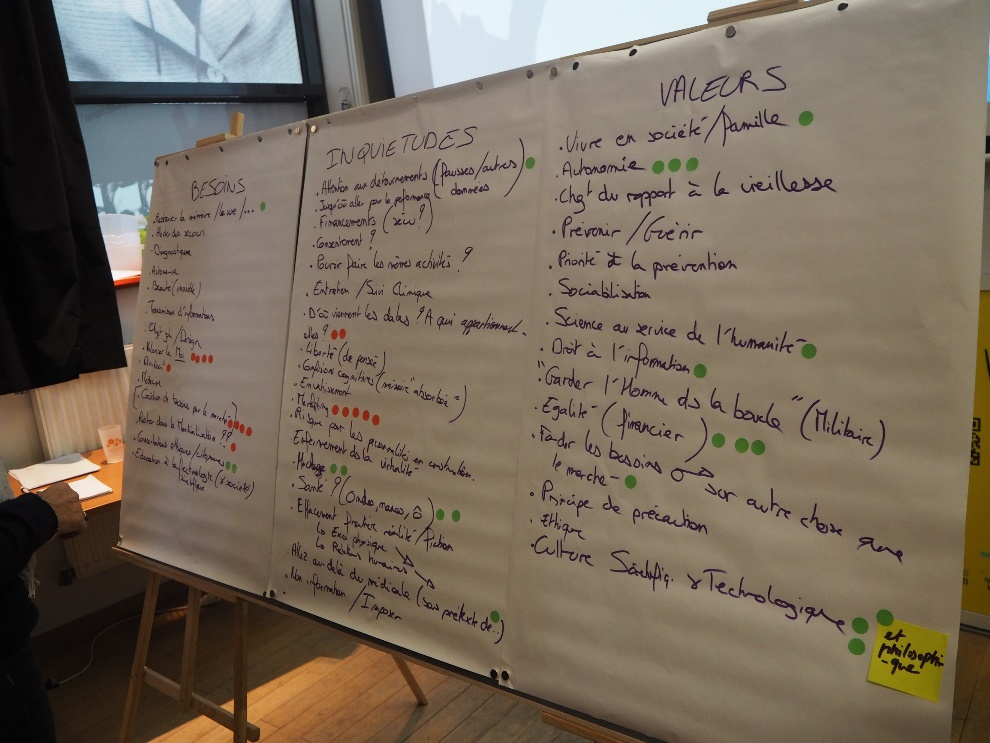 BESOINS
. Restaurer la mémoire / la vue /...
. Alerter des secours
. Diagnostique
. Autonomie
. Beauté (inutile)
. Transmission d'informations
. Design
. le Moi
. Médecine
(Création de besoins par le marché)
. Rester dans la Mondialisation ??
. citoyennes
. Education à la technologie (& société)
INQUIETUDES
. Attention aux détournements (fausses/autres)
données
. Jusqu'où aller pour la performance
. Financements (sécu ?)
. Consentement ?
. Pouvoir faire les mêmes activités ?
. Entretien / Suivi Clinique
. D'où viennent les datas ? A qui appartiennent-
elles ?
. Liberté (de pensée)
. Confusions cognitives (mémoire "absorbée")
. Envahissement
. Marketing
. Risque pour les personnalités en construction.
. Enfermement ds la virtualité
. Hackage
. Santé ? (Ondes, nanos, Ô)
. Effacement frontière réalité / fiction
↳ Exo physique
↳ Relations humaines
. Allez au delà du médicale (sous prétexte de..)
. Non information / Imposer
VALEURS
. Vivre en société / famille
. Autonomie
. Chgt du rapport à la vieillesse
. Prévenir / Guérir
. Priorité à la prévention
. Sociabilisation
. Science au service de l'humanité
. Droit à l'information
. "Garder l'Homme ds la boucle" (Militaire)
. Egalité (financier)
. Fonder les besoins sur autre chose que
le marché
. Principe de précaution
. Ethique
. Culture Scientifiq. & Technologique
et
philosophi-
-que